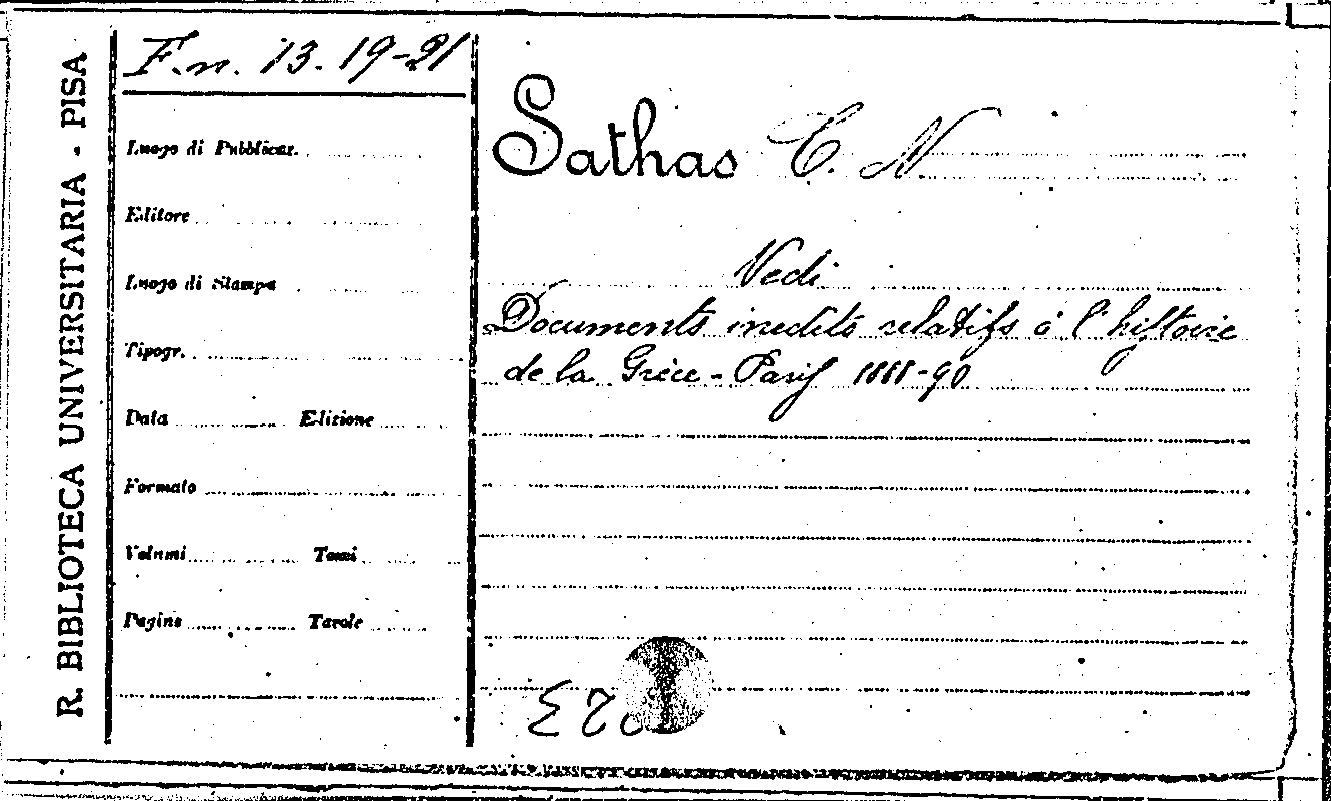 R. BIBLIOTECA UNIVERSITARIA - PISA
F. n. 13. 19-21
Luogo di Pubblicaz.
Editore
Luogo di Stampa
Tipogr.
Data Edizione
Formato
Volumi Tomi
Pagine Tavole
Sathas C. N.
Vedi
Documents inedits relatifs à l'histoire
de la Grèce - Paris 1888-90